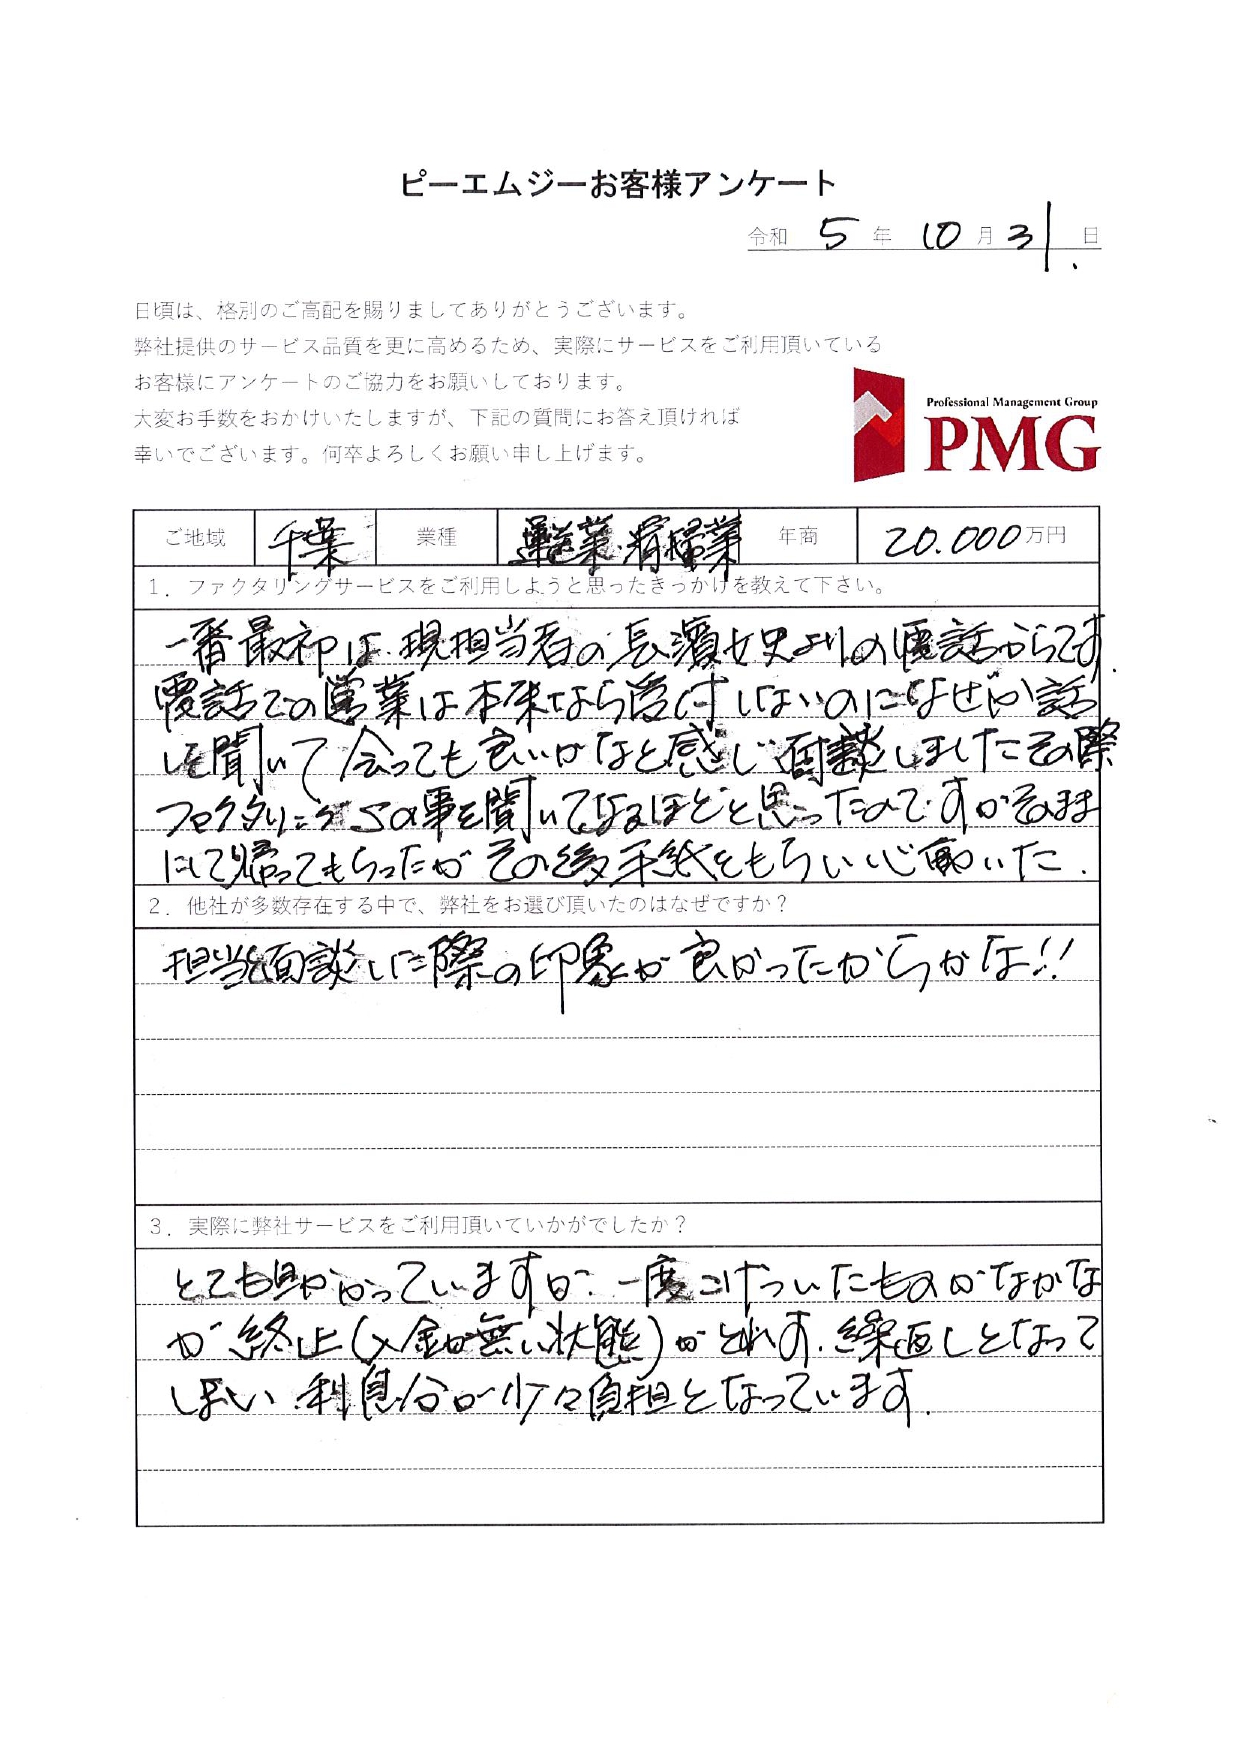 ピーエムジーお客様アンケート
令和 5 年 10 月 31 日
日頃は、格別のご高配を賜りましてありがとうございます。
弊社提供のサービス品質を更に高めるため、実際にサービスをご利用頂いている
お客様にアンケートのご協力をお願いしております。
大変お手数をおかけいたしますが、下記の質問にお答え頂ければ
幸いでございます。何卒よろしくお願い申し上げます。
Professional Management Group
PMG
ご地域 千葉 業種 運送業.清掃業 年商 20.000万円
1．ファクタリングサービスをご利用しようと思ったきっかけを教えて下さい。
一番最初は.現担当者の長濱女史よりの電話からです.
電話での営業は本来なら受付しないのになぜか話
しを聞いて会っても良いかなと感じ面談しましたその際
ファクタリングSの事を聞いてなるほどと思ったのですがそのまま
にして帰ってもらったが その後手紙をもらい心動いた.
2．他社が多数存在する中で、弊社をお選び頂いたのはなぜですか？
担当と面談した際の印象が良かったからかな!!
3．実際に弊社サービスをご利用頂いていかがでしたか？
とても助かっていますが.一度こげついたものがなかな
か 終止(入金が無い状態)がとれず.繰返しとなって
しまい.利息分が少々負担となっています.